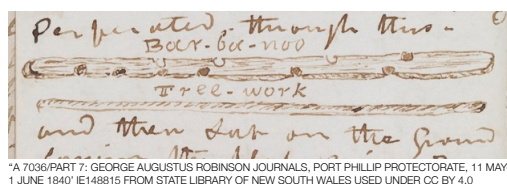 Perperated through thus -
Tree-work
and then on the Ground
"A 7036/PART 7: GEORGE AUGUSTUS ROBINSON JOURNALS, PORT PHILLIP PROTECTORATE, 11 MAY
1 JUNE 1840' IE148815 FROM STATE LIBRARY OF NEW SOUTH WALES USED UNDER CC BY 4.0